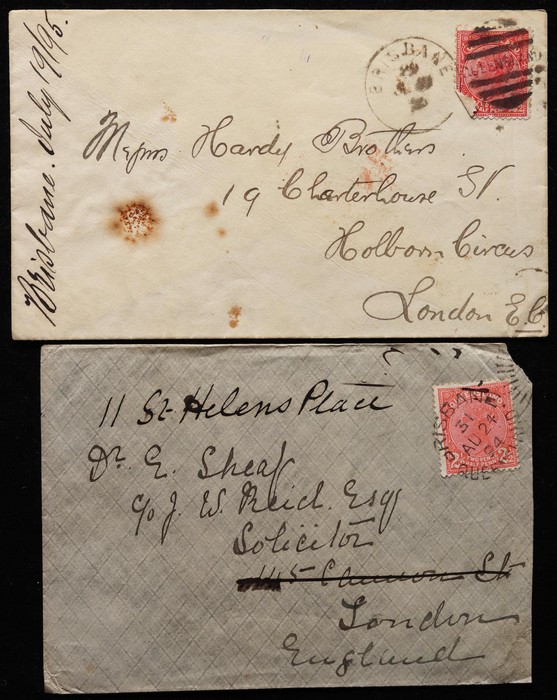 Brisbane. July 19/95.
BRISBANE
29
Messrs Hardy Brothers.
19 Charterhouse St.
Holborn Circus
London E.C.
11 St Helens Place
Dr. E. Sheaf
c/o J. W. Reid. Esq
Solicitor
145 Cannon St
London
England
BRISBANE
31
AU 24
94